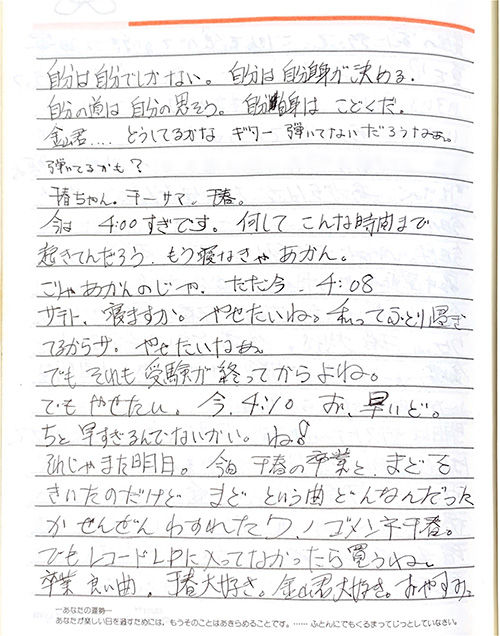 自分は自分でしかない。自分は自分自身が決める.
自分の道は自分の思そう。自分自身は こどくだ.
金山君.... どうしてるかな ギター 弾いてないだろうなあ。
弾いてるかも?
千春ちゃん。チーサマ、千春。
今は 4:00すぎです。何して こんな時間まで
起きてんだろう.もう寝なきゃ あかん。
こりゃあかんのじゃ. ただ今. 4:08
サテト、寝ますか。やせたいね。私ってふとり過ぎ
てるからサ。やせたいなぁ。
でも それも 受験が 終ってからよね。
でもやせたい。今.4:10 お、早いど。
ちと早すぎるんでないかい。ね!
それじゃまた明日。今日 千春の卒業と、まどを
きいたのだけど まど という曲 どんなんだった
か ぜんぜん わすれたワ.ノゴメンネ千春。
でもレコードLPに入ってなかったら買うわね.
卒業 良い曲. 千春大好き。金山君大好き。おやすみ
―あなたの運勢―
あなたが楽しい日を過すためには、もうそのことはあきらめることです。……ふとんにでもくるまってじっとしていなさい。